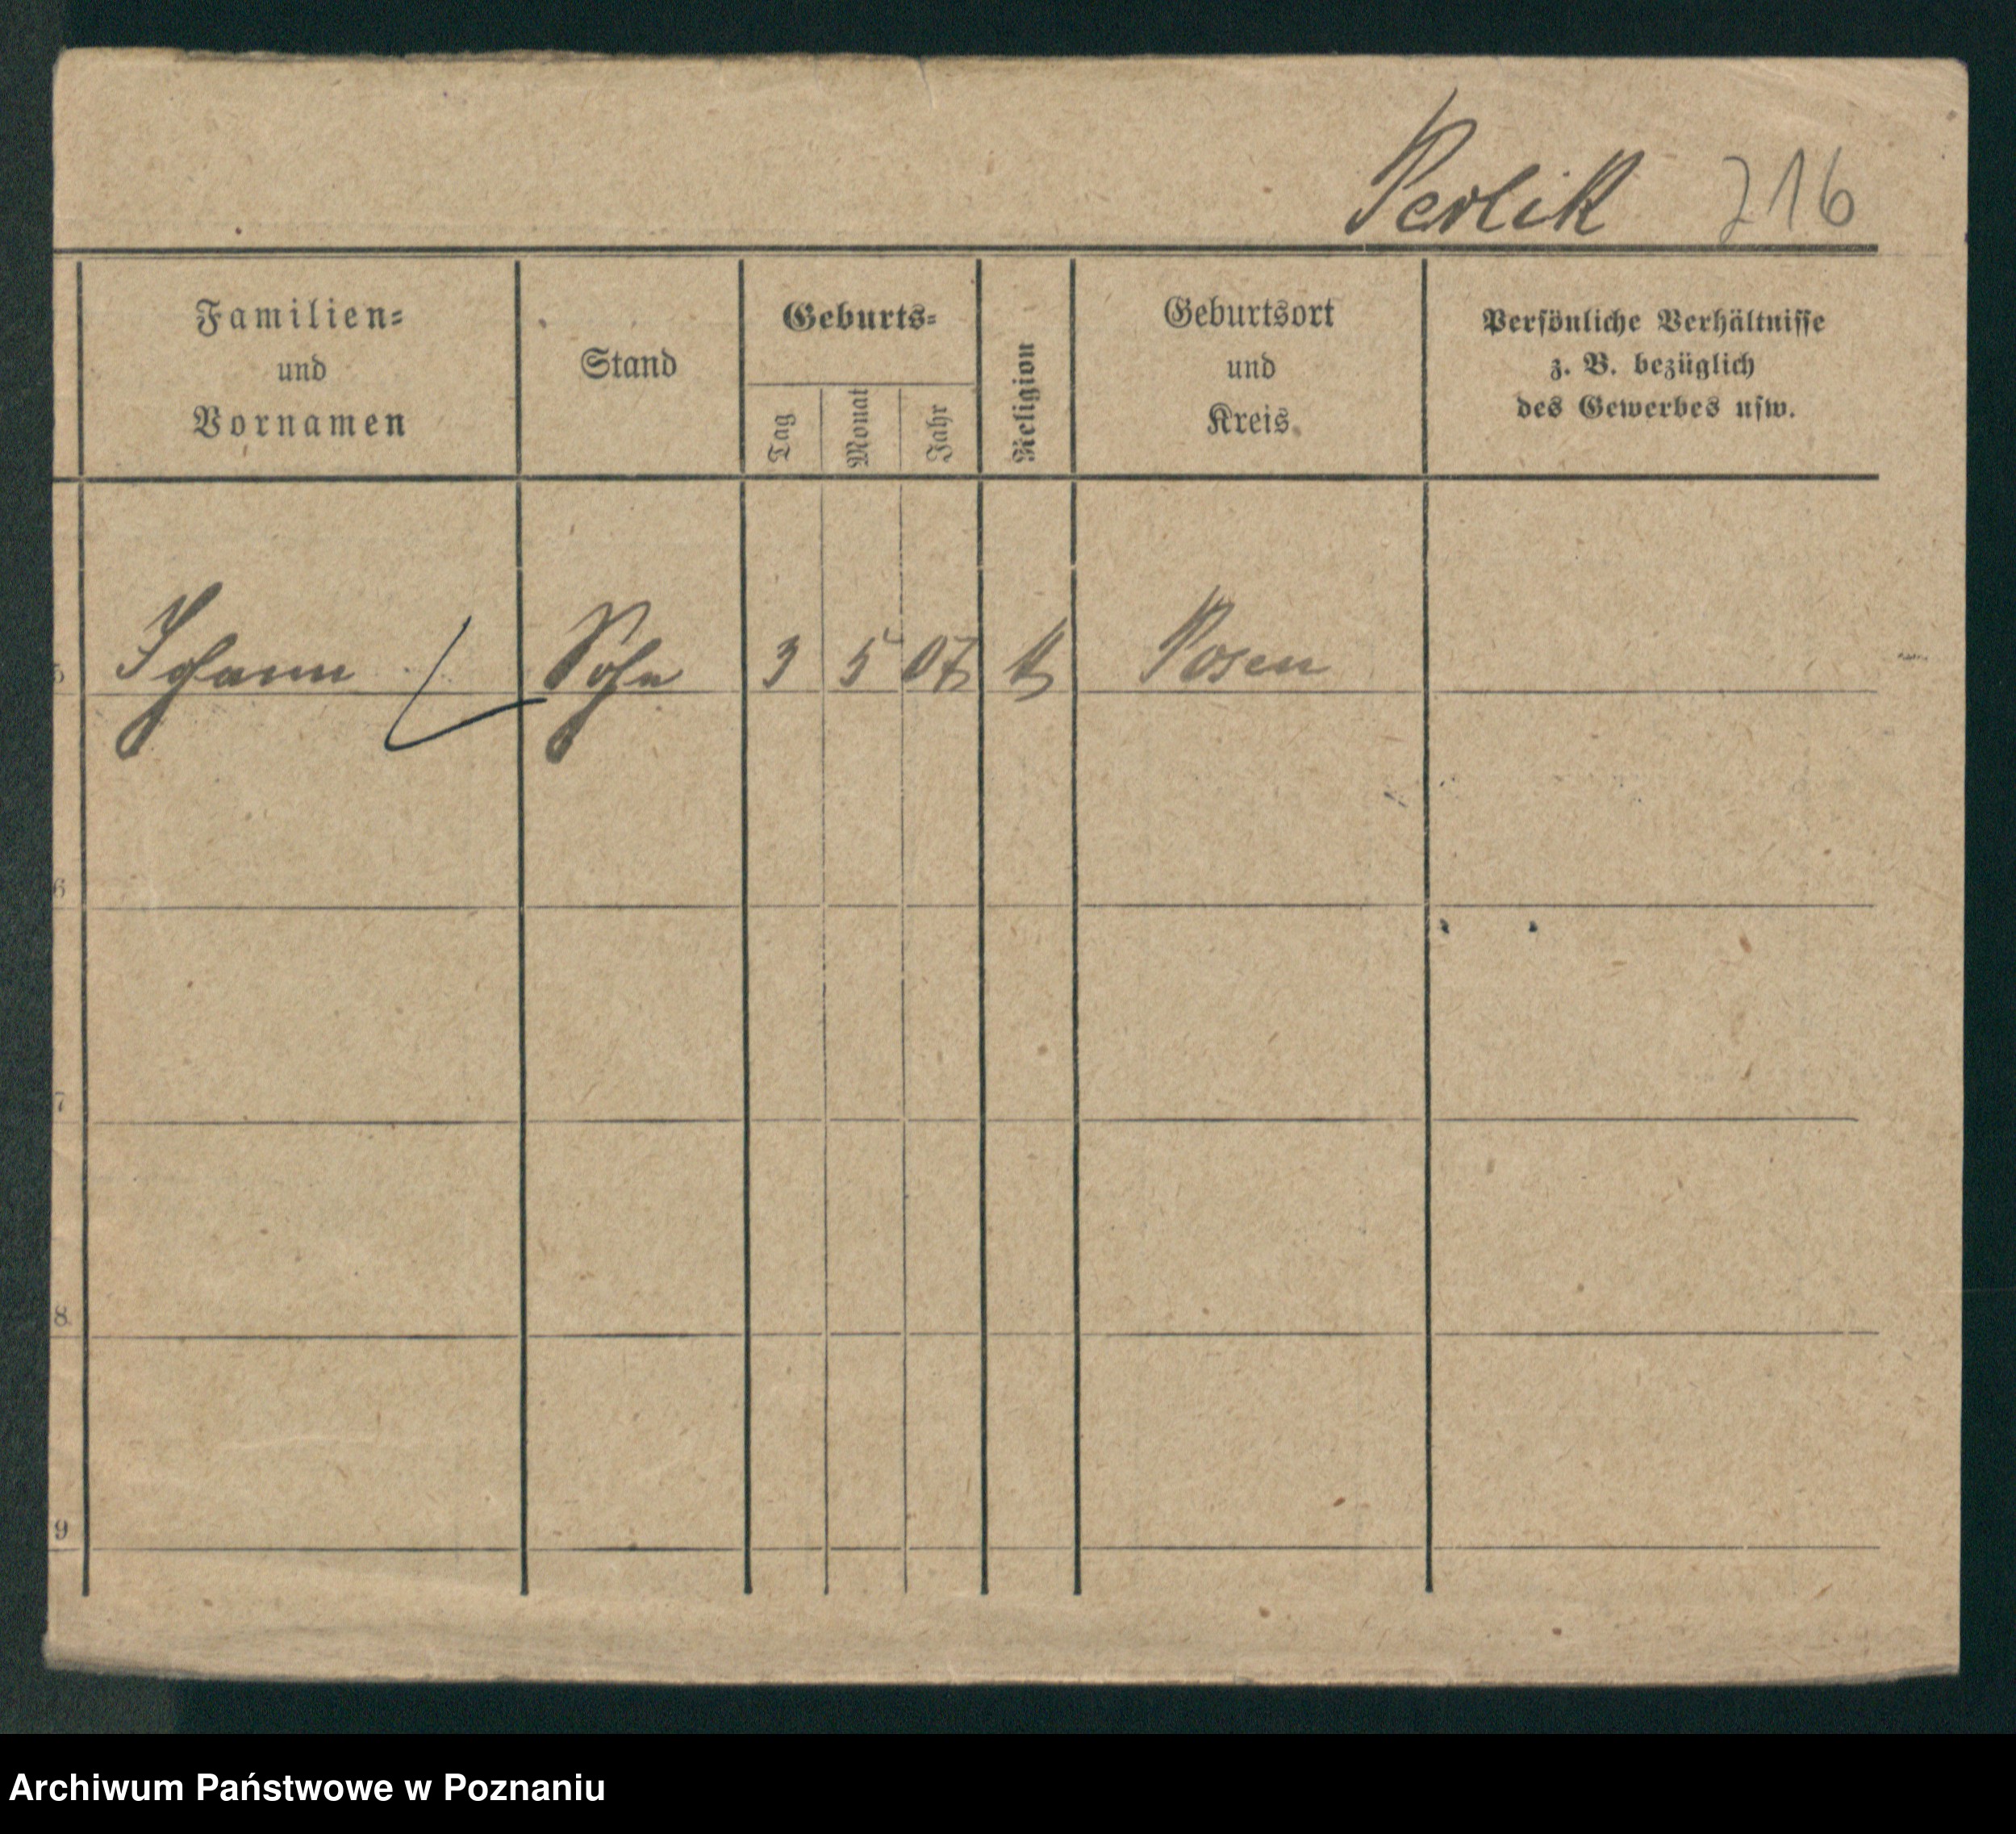 Perlik 216
Familien=
und
Vornamen
Stand
Geburts=
Tag
Monat
Jahr
Religion
Geburtsort
und
Kreis
Persönliche Verhältnisse
z. B. bezüglich
des Gewerbes usw.
5 Johann Sohn 3 5 07 k Posen
6
7
8
9
Archiwum Państwowe w Poznaniu